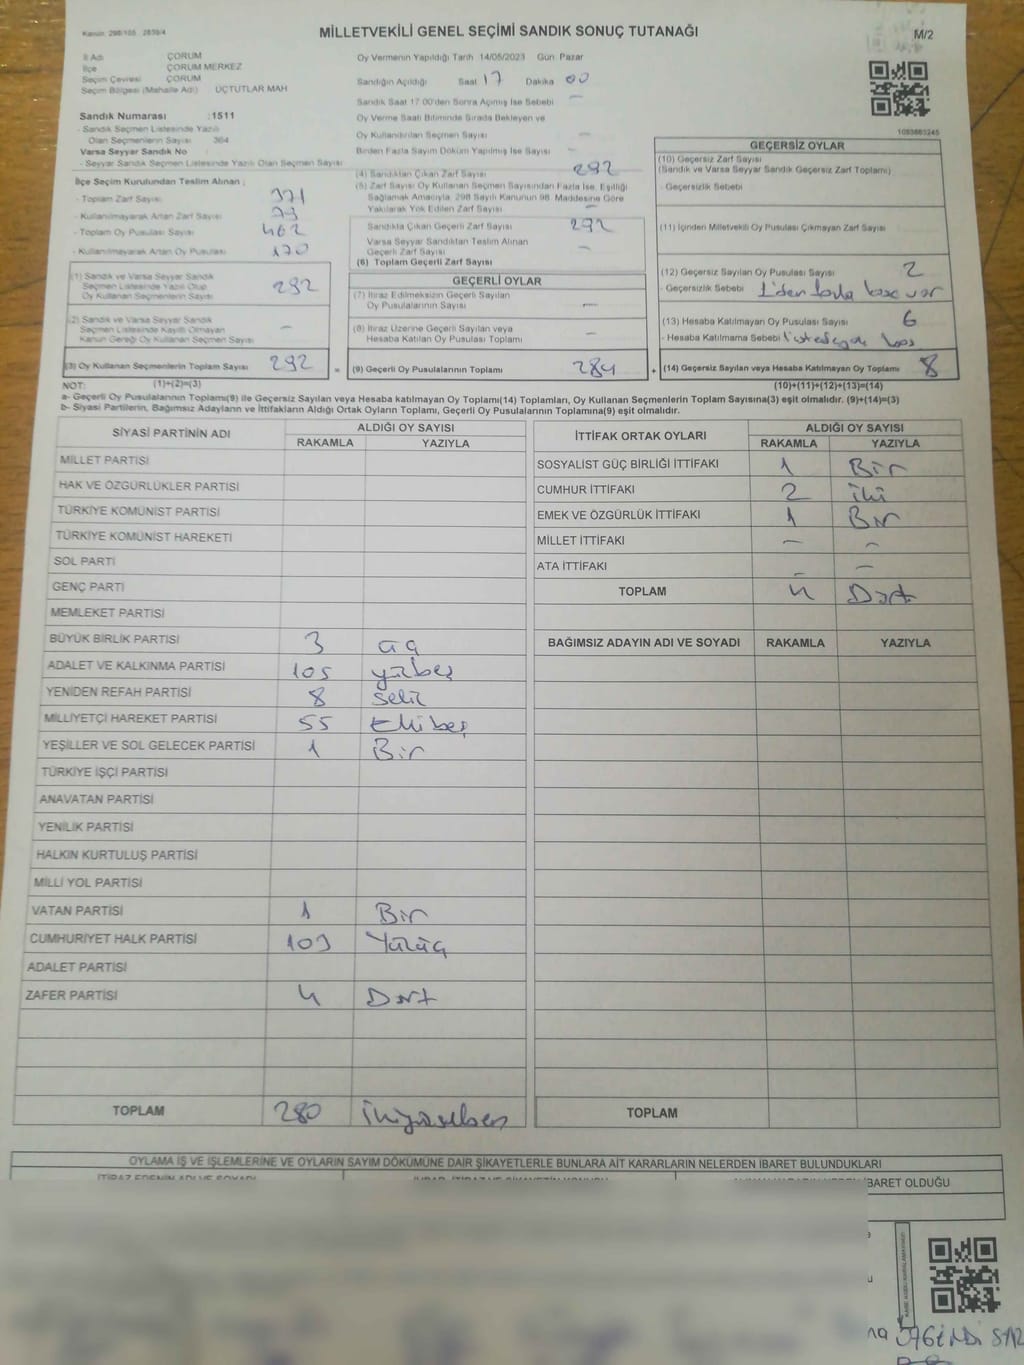 Kanun: 298/105 , 2839/4
MİLLETVEKİLİ GENEL SEÇİMİ SANDIK SONUÇ TUTANAĞI
M/2
İl Adı : ÇORUM
İlçe : ÇORUM MERKEZ
Seçim Çevresi : ÇORUM
Seçim Bölgesi (Mahalle Adı) : ÜÇTUTLAR MAH
Sandık Numarası :1511
- Sandık Seçmen Listesinde Yazılı
Olan Seçmenlerin Sayısı : 364
Varsa Seyyar Sandık No :
- Seyyar Sandık Seçmen Listesinde Yazılı Olan Seçmen Sayısı :
İlçe Seçim Kurulundan Teslim Alınan ;
- Toplam Zarf Sayısı : 371
- Kullanılmayarak Artan Zarf Sayısı : 79
- Toplam Oy Pusulası Sayısı : 462
- Kullanılmayarak Artan Oy Pusulası : 170
(1) Sandık ve Varsa Seyyar Sandık
Seçmen Listesinde Yazılı Olup
Oy Kullanan Seçmenlerin Sayısı : 292
(2) Sandık ve Varsa Seyyar Sandık
Seçmen Listesinde Kayıtlı Olmayan
Kanun Gereği Oy Kullanan Seçmen Sayısı : -
(3) Oy Kullanan Seçmenlerin Toplam Sayısı : 292
Oy Vermenin Yapıldığı Tarih : 14/05/2023 Gün : Pazar
Sandığın Açıldığı Saat : 17 Dakika : 00
Sandık Saat 17:00'den Sonra Açılmış İse Sebebi : -
Oy Verme Saati Bitiminde Sırada Bekleyen ve
Oy Kullandırılan Seçmen Sayısı : -
Birden Fazla Sayım Döküm Yapılmış İse Sayısı : -
(4) Sandıktan Çıkan Zarf Sayısı : 292
(5) Zarf Sayısı Oy Kullanan Seçmen Sayısından Fazla İse, Eşitliği
Sağlamak Amacıyla, 298 Sayılı Kanunun 98. Maddesine Göre
Yakılarak Yok Edilen Zarf Sayısı : -
Sandıkta Çıkan Geçerli Zarf Sayısı : 292
Varsa Seyyar Sandıktan Teslim Alınan
Geçerli Zarf Sayısı :
(6) Toplam Geçerli Zarf Sayısı :
GEÇERLİ OYLAR
(7) İtiraz Edilmeksizin Geçerli Sayılan
Oy Pusulalarının Sayısı : -
(8) İtiraz Üzerine Geçerli Sayılan veya
Hesaba Katılan Oy Pusulası Toplamı : -
= (9) Geçerli Oy Pusulalarının Toplamı : 284
1093663245
GEÇERSİZ OYLAR
(10) Geçersiz Zarf Sayısı
(Sandık ve Varsa Seyyar Sandık Geçersiz Zarf Toplamı) :
- Geçersizlik Sebebi :
(11) İçinden Milletvekili Oy Pusulası Çıkmayan Zarf Sayısı :
(12) Geçersiz Sayılan Oy Pusulası Sayısı : 2
- Geçersizlik Sebebi : 1'den fazla basılı var
(13) Hesaba Katılmayan Oy Pusulası Sayısı : 6
- Hesaba Katılmama Sebebi :
+ (14) Geçersiz Sayılan veya Hesaba Katılmayan Oy Toplamı : 8
NOT: (1)+(2)=(3)
(10)+(11)+(12)+(13)=(14)
a- Geçerli Oy Pusulalarının Toplamı(9) ile Geçersiz Sayılan veya Hesaba katılmayan Oy Toplamı(14) Toplamları, Oy Kullanan Seçmenlerin Toplam Sayısına(3) eşit olmalıdır. (9)+(14)=(3)
b- Siyasi Partilerin, Bağımsız Adayların ve İttifakların Aldığı Ortak Oyların Toplamı, Geçerli Oy Pusulalarının Toplamına(9) eşit olmalıdır.
SİYASİ PARTİNİN ADI
ALDIĞI OY SAYISI
RAKAMLA YAZIYLA
MİLLET PARTİSİ
HAK VE ÖZGÜRLÜKLER PARTİSİ
TÜRKİYE KOMÜNİST PARTİSİ
TÜRKİYE KOMÜNİST HAREKETİ
SOL PARTİ
GENÇ PARTİ
MEMLEKET PARTİSİ
BÜYÜK BİRLİK PARTİSİ 3 üç
ADALET VE KALKINMA PARTİSİ 105 yüzbeş
YENİDEN REFAH PARTİSİ 8 sekiz
MİLLİYETÇİ HAREKET PARTİSİ 55 Ellibeş
YEŞİLLER VE SOL GELECEK PARTİSİ 1 Bir
TÜRKİYE İŞÇİ PARTİSİ
ANAVATAN PARTİSİ
YENİLİK PARTİSİ
HALKIN KURTULUŞ PARTİSİ
MİLLİ YOL PARTİSİ
VATAN PARTİSİ 1 Bir
CUMHURİYET HALK PARTİSİ 103 Yüzüç
ADALET PARTİSİ
ZAFER PARTİSİ 4 Dört
TOPLAM 280 İkiyüzseksen
İTTİFAK ORTAK OYLARI
ALDIĞI OY SAYISI
RAKAMLA YAZIYLA
SOSYALİST GÜÇ BİRLİĞİ İTTİFAKI 1 Bir
CUMHUR İTTİFAKI 2 iki
EMEK VE ÖZGÜRLÜK İTTİFAKI 1 Bir
MİLLET İTTİFAKI - -
ATA İTTİFAKI - -
TOPLAM 4 Dört
BAĞIMSIZ ADAYIN ADI VE SOYADI RAKAMLA YAZIYLA
TOPLAM
OYLAMA İŞ VE İŞLEMLERİNE VE OYLARIN SAYIM DÖKÜMÜNE DAİR ŞİKAYETLERLE BUNLARA AİT KARARLARIN NELERDEN İBARET BULUNDUKLARI
İTİRAZ EDENİN ADI VE SOYADI
İBARET OLDUĞU